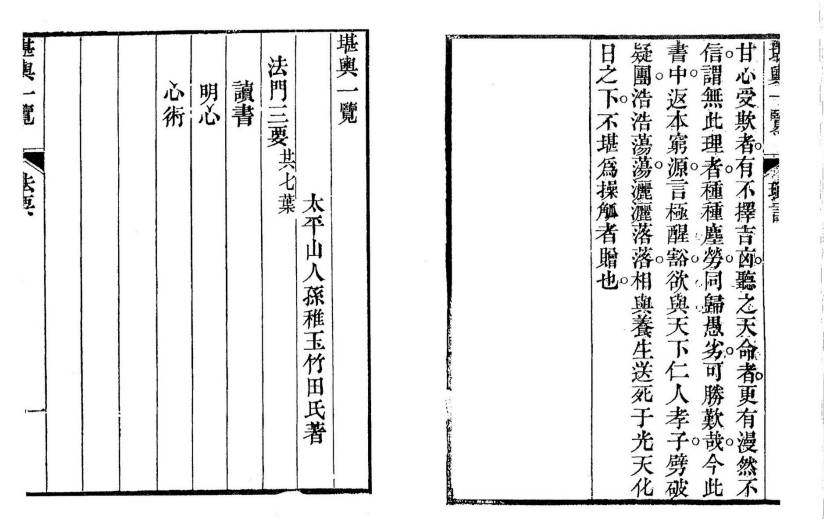 堪輿一覽
甘心受欺者。有不擇吉凶。聽之天命者。更有漫然不
信。謂無此理者。種種塵勞。同歸愚劣。可勝歎哉。今此
書中。返本窮源。言極醒豁。欲與天下仁人孝子。劈破
疑團。浩浩蕩蕩。灑灑落落。相與養生送死于光天化
日之下。不堪爲操觚者贈也。
堪輿一覽
太平山人孫稚玉竹田氏著
法門三要共七葉
讀書
明心
心術
堪輿一覽
法要
一